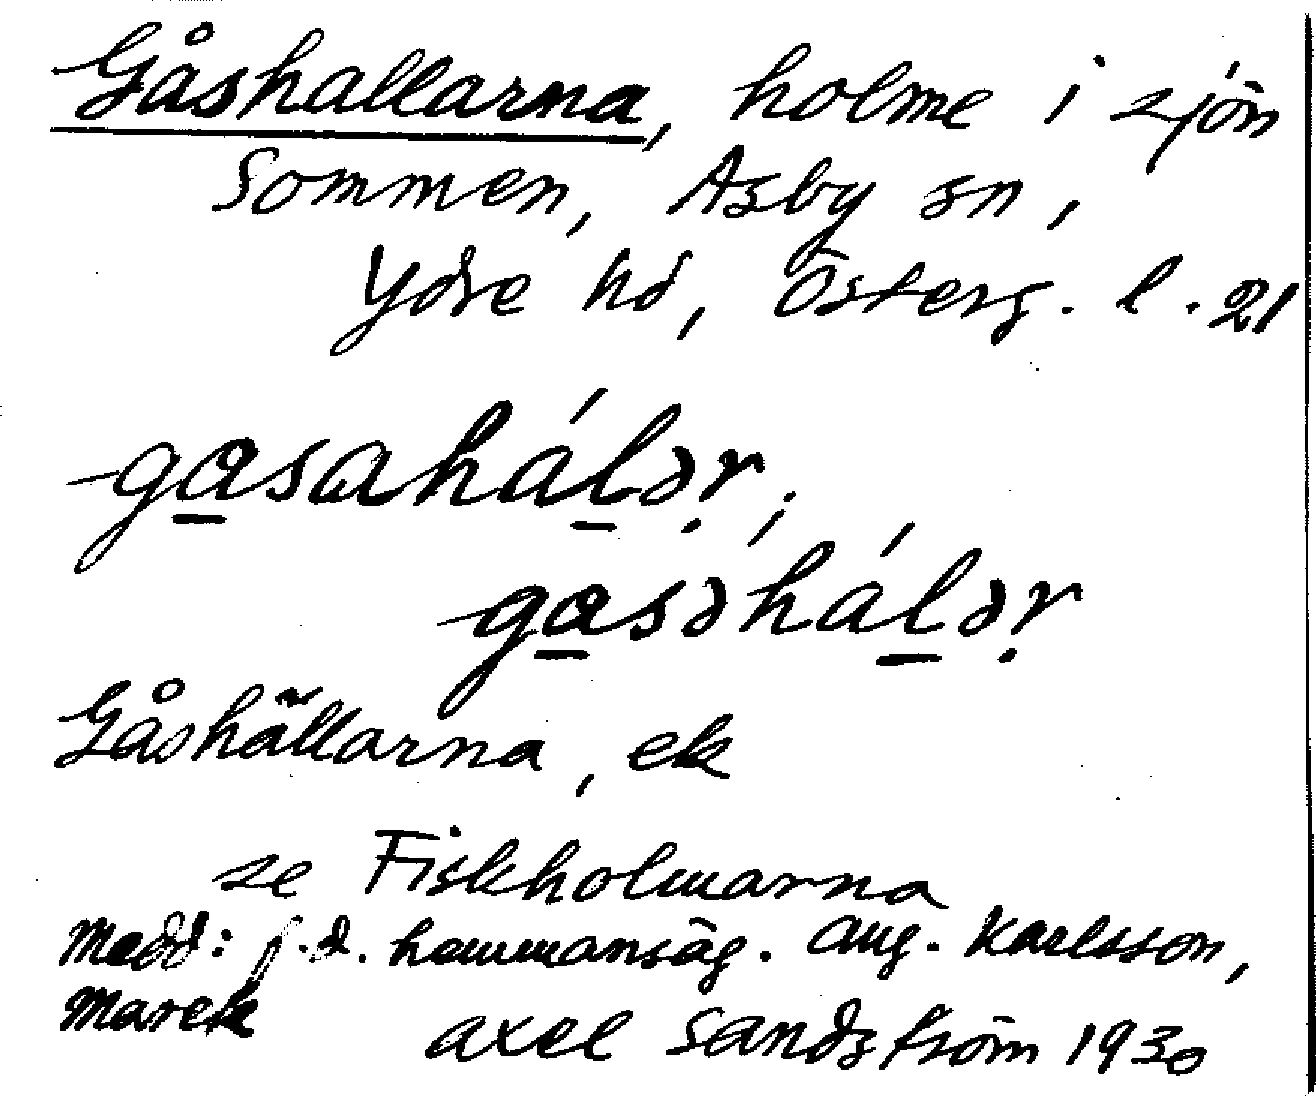 Gåshallarna, holme i sjön
Sommen, Asby sn,
Ydre hd, Österg. l. 21
gasahálər;
gasəhálər
Gåshällarna, ek
se Fiskholmarna
Medd: f.d. hemmansäg. Aug. Karlsson,
Marek
Axel Sandström 1930